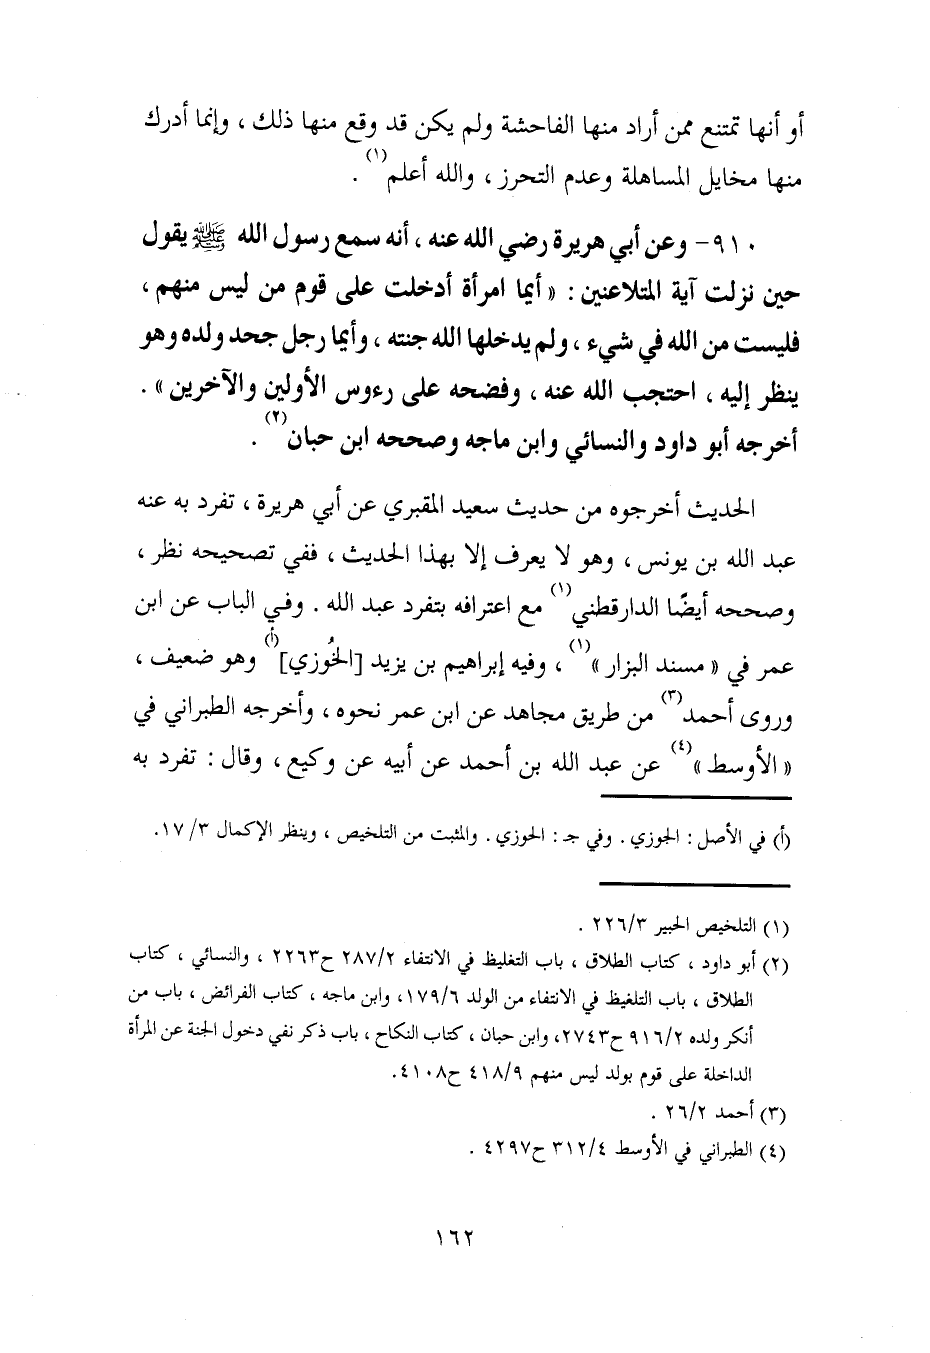 أو أنها تمتنع ممن أراد منها الفاحشة ولم يكن قد وقع منها ذلك ، وإنما أدرك
منها مخايل المساهلة وعدم التحرز ، والله أعلم(١) .
٩١٠- وعن أبي هريرة رضي الله عنه ، أنه سمع رسول الله ﷺ يقول
حين نزلت آية المتلاعنين : « أيما امرأة أدخلت على قوم من ليس منهم ،
فليست من الله في شيء ، ولم يدخلها الله جنته ، وأيما رجل جحد ولده وهو
ينظر إليه ، احتجب الله عنه ، وفضحه على رءوس الأولين والآخرين » .
أخرجه أبو داود والنسائي وابن ماجه وصححه ابن حبان(٢) .
الحديث أخرجوه من حديث سعيد المقبري عن أبي هريرة ، تفرد به عنه
عبد الله بن يونس ، وهو لا يعرف إلا بهذا الحديث ، ففي تصحيحه نظر ،
وصححه أيضًا الدارقطني(١) مع اعترافه بتفرد عبد الله . وفي الباب عن ابن
عمر في « مسند البزار »(١) ، وفيه إبراهيم بن يزيد [الخُوزي](أ) وهو ضعيف ،
وروى أحمد(٣) من طريق مجاهد عن ابن عمر نحوه ، وأخرجه الطبراني في
« الأوسط »(٤) عن عبد الله بن أحمد عن أبيه عن وكيع ، وقال : تفرد به
(أ) في الأصل : الجوزي . وفي جـ : الحوزي . والمثبت من التلخيص ، وينظر الإكمال ٣/ ١٧.
(١) التلخيص الحبير ٢٢٦/٣ .
(٢) أبو داود ، كتاب الطلاق ، باب التغليظ في الانتفاء ٢٨٧/٢ ح٢٢٦٣ ، والنسائي ، كتاب
الطلاق ، باب التلغيظ في الانتفاء من الولد ١٧٩/٦، وابن ماجه ، كتاب الفرائض ، باب من
أنكر ولده ٩١٦/٢ ح٢٧٤٣، وابن حبان ، كتاب النكاح ، باب ذكر نفي دخول الجنة عن المرأة
الداخلة على قوم بولد ليس منهم ٤١٨/٩ ح٤١٠٨.
(٣) أحمد ٢٦/٢ .
(٤) الطبراني في الأوسط ٣١٢/٤ ح٤٢٩٧ .
١٦٢